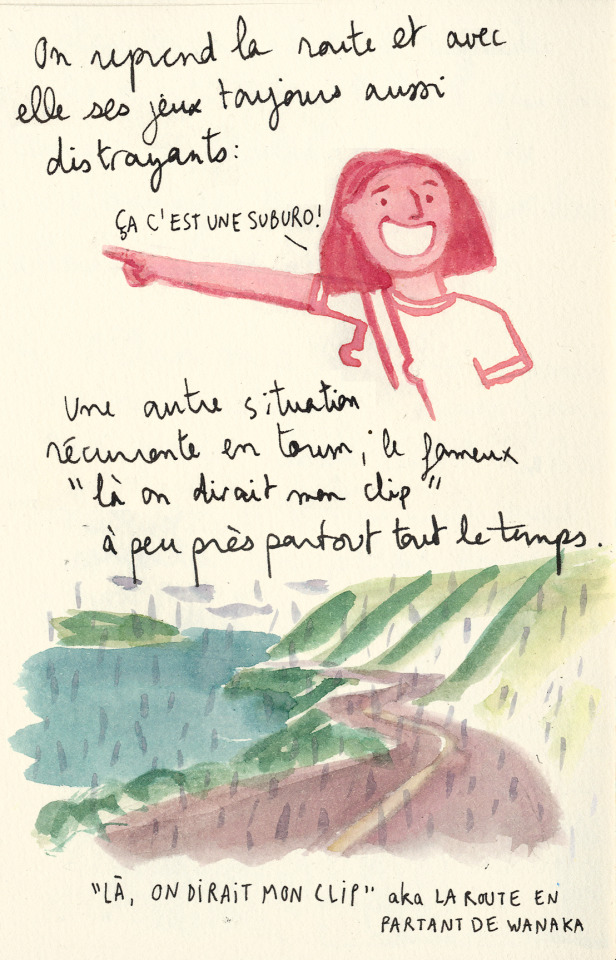 On reprend la route et avec
elle ses jeux toujours aussi
distrayants:
ÇA C'EST UNE SUBURO!
Une autre situation
récurrente en tourn; le fameux
"là on dirait mon clip"
à peu près partout tout le temps.
"LÀ, ON DIRAIT MON CLIP" aka LA ROUTE EN
PARTANT DE WANAKA